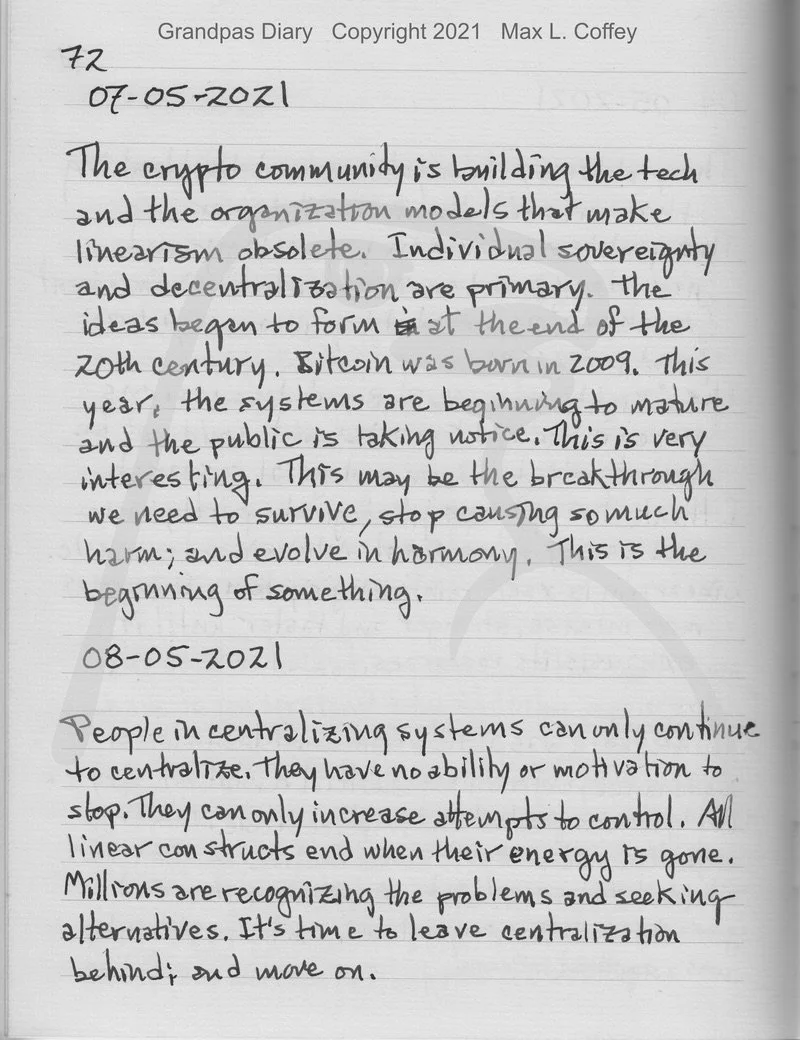 Grandpas Diary Copyright 2021 Max L. Coffey
72
07-05-2021
The crypto community is building the tech
and the organization models that make
linearism obsolete. Individual sovereignty
and decentralization are primary. The
ideas began to form at the end of the
20th century. Bitcoin was born in 2009. This
year, the systems are beginning to mature
and the public is taking notice. This is very
interesting. This may be the breakthrough
we need to survive, stop causing so much
harm; and evolve in harmony. This is the
beginning of something.
08-05-2021
People in centralizing systems can only continue
to centralize. They have no ability or motivation to
stop. They can only increase attempts to control. All
linear constructs end when their energy is gone.
Millions are recognizing the problems and seeking
alternatives. It's time to leave centralization
behind; and move on.